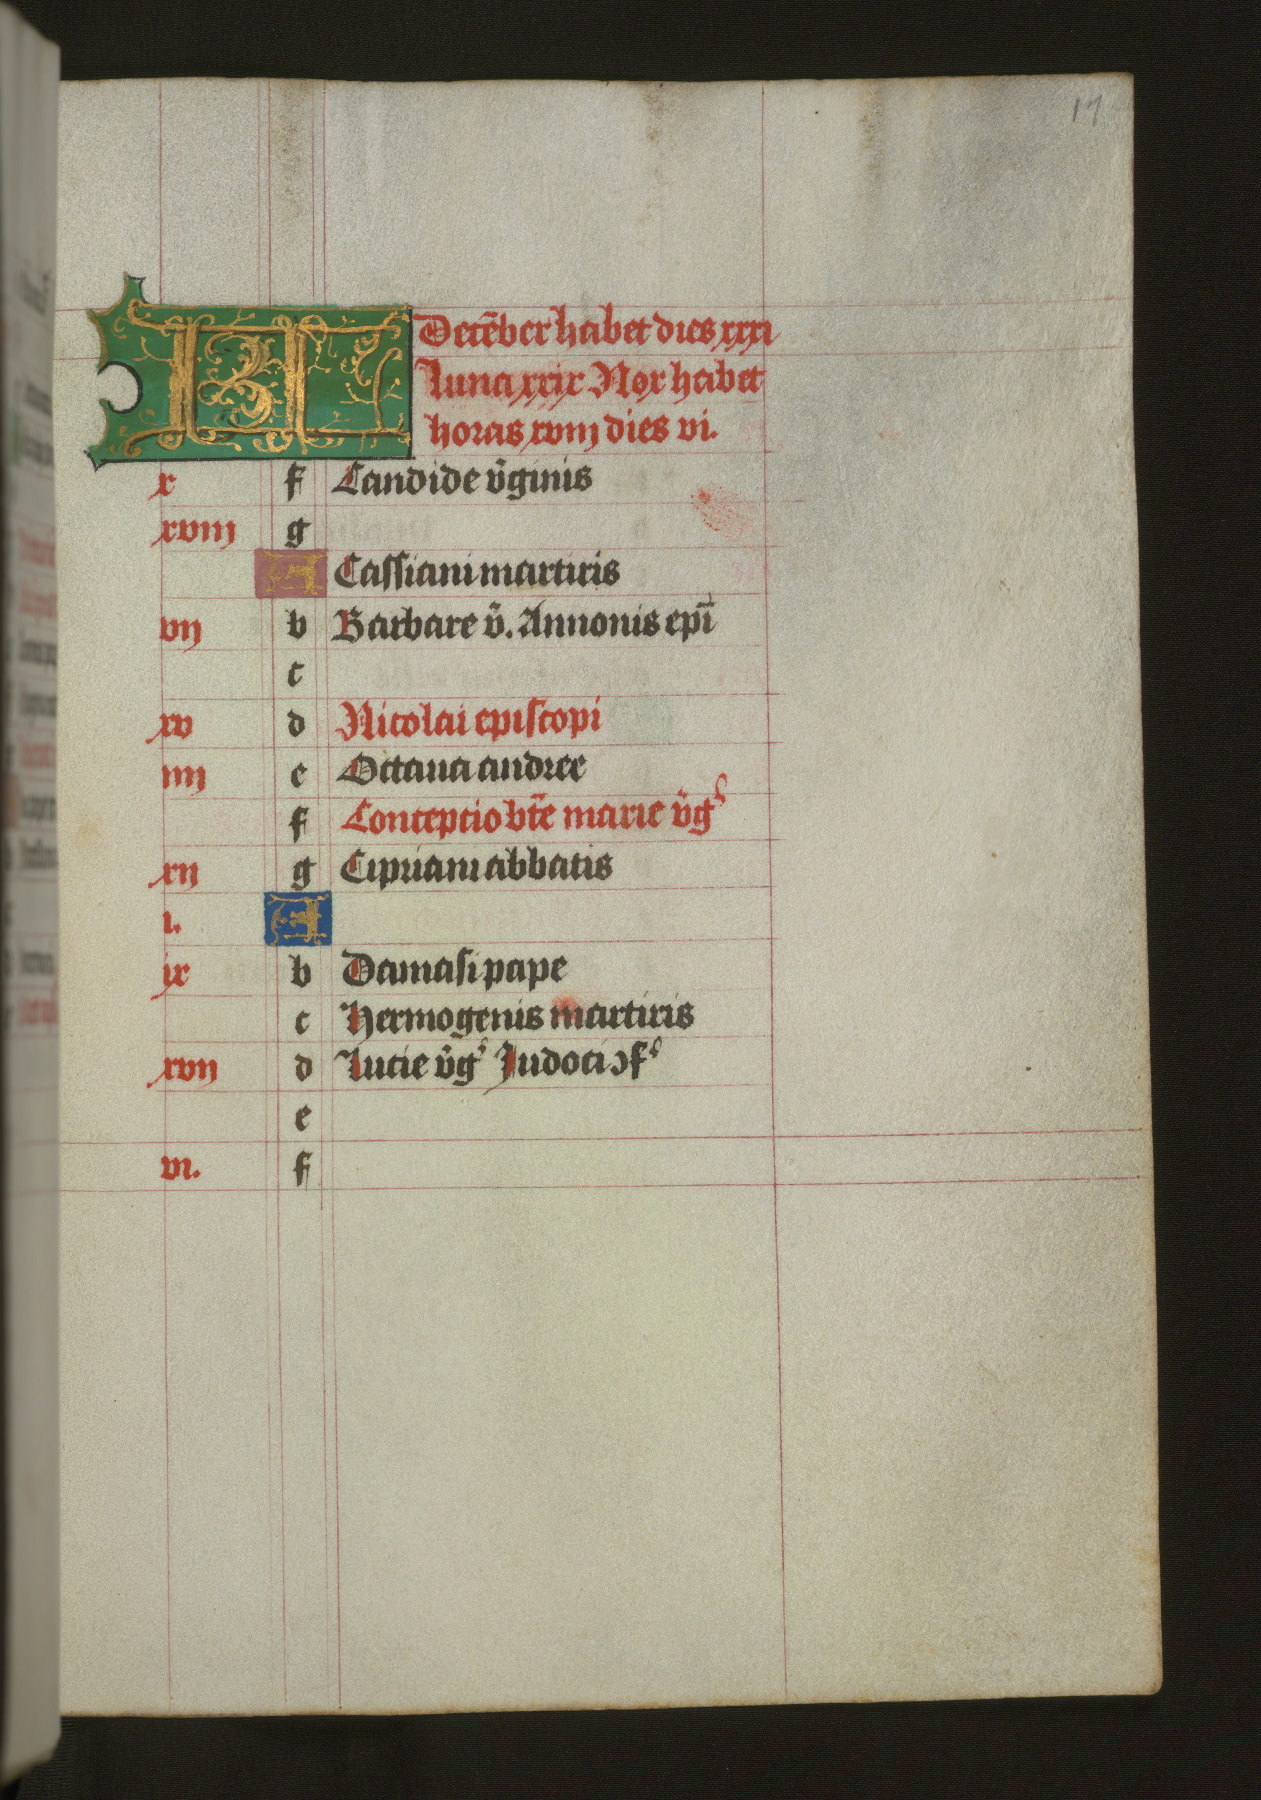 17
KL Decēber habet dies xxxi
luna xxix Nox habet
horas xviij dies vi.
x f Candide v̄ginis
xviij g
A Cassiani martiris
vij b Barbare v̄. Annonis epī
c
xv d Nicolai episcopi
iiij e Octaua andree
f Conceptio bt̄e marie v̄gꝭ
xij g Cipriani abbatis
i. A
ix b Damasi pape
c Hermogenis martiris
xvij d Lucie v̄gꝭ Judoci ↄfꝭ
e
vi. f